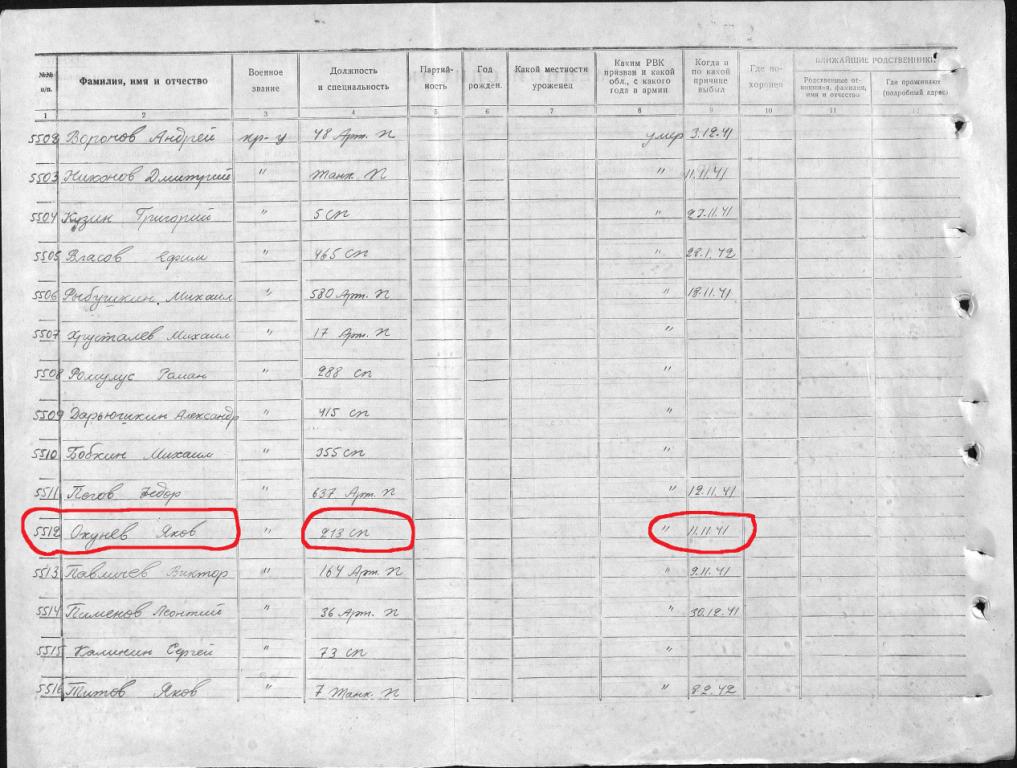 №№ п/п. Фамилия, имя и отчество Военное звание Должность и специальность Партийность Год рожден. Какой местности уроженец Каким РВК призван и какой обл., с какого года в армии Когда и по какой причине выбыл Где похоронен БЛИЖАЙШИЕ РОДСТВЕННИКИ
Родственные отношения, фамилия, имя и отчество Где проживают (подробный адрес)
1 2 3 4 5 6 7 8 9 10 11 12
5502 Воронов Андрей кр-ц 48 Арт. П умер 3.12.41
5503 Никонов Дмитрий " Танк. П " 11.11.41
5504 Кузин Григорий " 5 сп " 27.11.41
5505 Власов Ефим " 465 сп " 28.1.42
5506 Рыбушкин Михаил " 580 Арт. П " 18.11.41
5507 Хрусталев Михаил " 17 Арт. П "
5508 Ромулус Роман " 288 сп "
5509 Дарьюшкин Александр " 415 сп "
5510 Бобкин Михаил " 355 сп
5511 Погов Федор " 637 Арт. П " 12.11.41
5512 Окунев Яков " 213 сп " 11.11.41
5513 Павличев Виктор " 164 Арт. П " 9.11.41
5514 Пименов Леонтий " 36 Арт. П " 30.12.41
5515 Калинин Сергей " 73 сп "
5516 Титов Яков " 7 Танк. П " 8.2.42